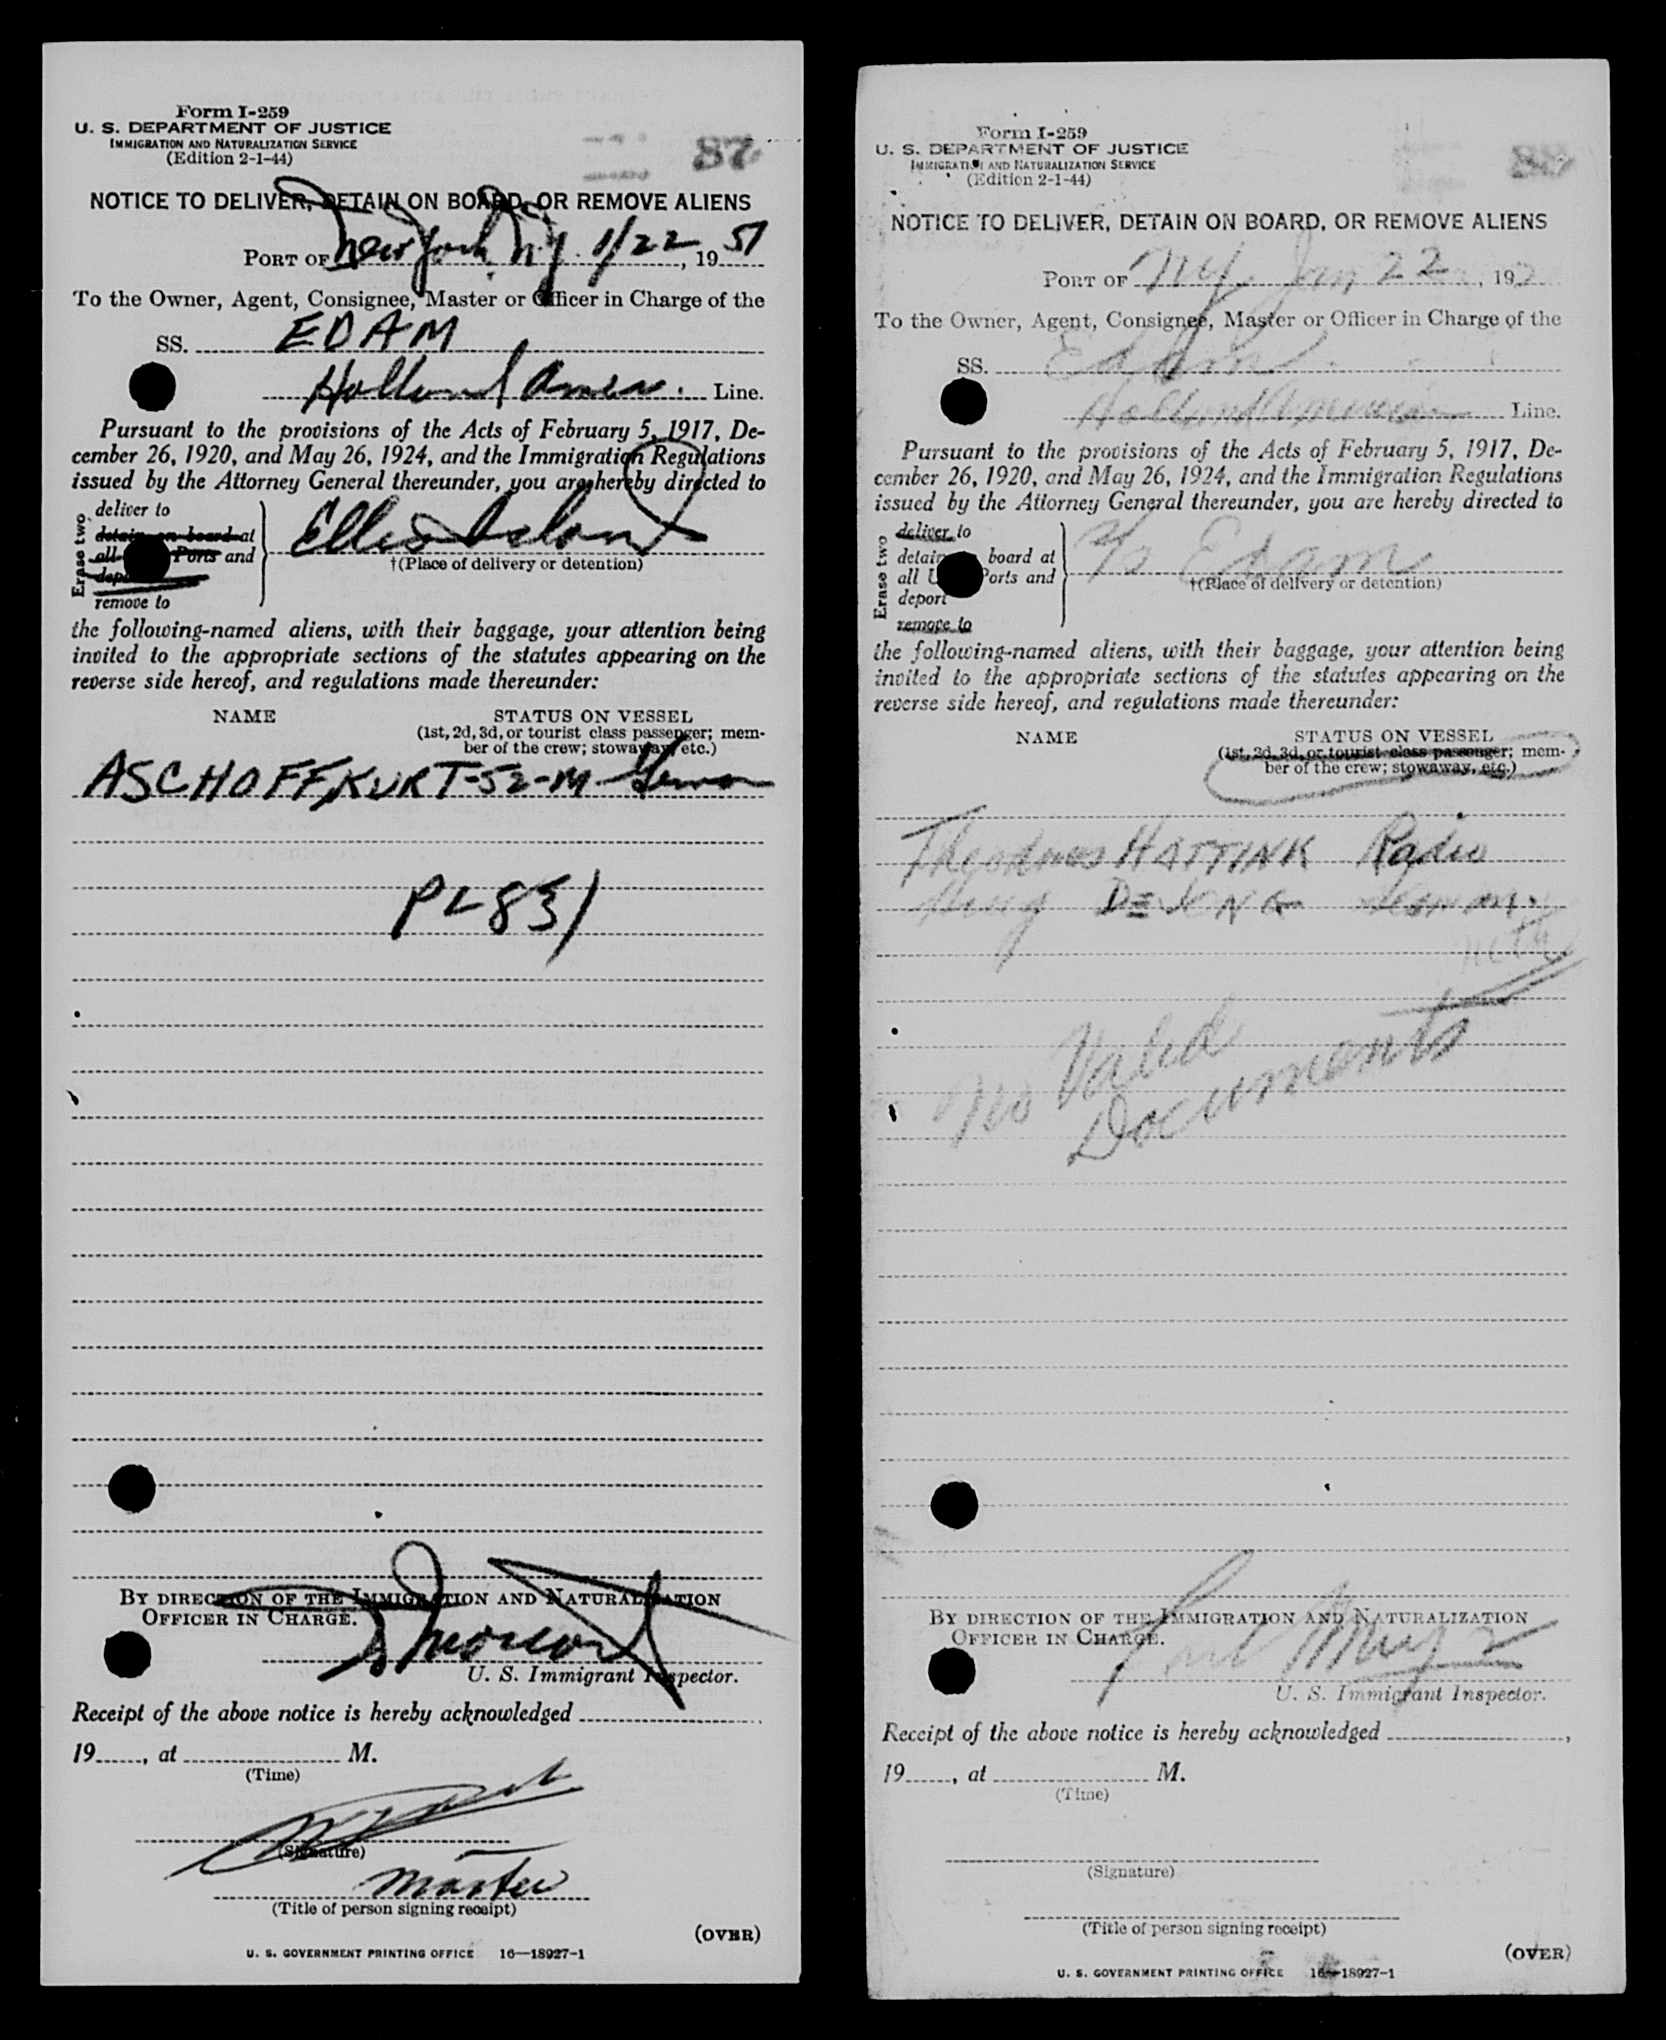 Form I-259
U. S. DEPARTMENT OF JUSTICE
IMMIGRATION AND NATURALIZATION SERVICE
(Edition 2-1-44)
87
NOTICE TO DELIVER, DETAIN ON BOARD, OR REMOVE ALIENS
PORT OF New York, N.Y. 1/22, 1951
To the Owner, Agent, Consignee, Master or Officer in Charge of the
SS. EDAM
Holland Amer. Line.
Pursuant to the provisions of the Acts of February 5, 1917, De-
cember 26, 1920, and May 26, 1924, and the Immigration Regulations
issued by the Attorney General thereunder, you are hereby directed to
Erase two
deliver to
detain on board at
all Ports and
remove to
Ellis Island
†(Place of delivery or detention)
the following-named aliens, with their baggage, your attention being
invited to the appropriate sections of the statutes appearing on the
reverse side hereof, and regulations made thereunder:
NAME STATUS ON VESSEL
(1st, 2d, 3d, or tourist class passenger; mem-
ber of the crew; stowaway, etc.)
ASCHOFF, KURT-52-M-
PL 831
BY DIRECTION OF THE IMMIGRATION AND NATURALIZATION
OFFICER IN CHARGE.
U. S. Immigrant Inspector.
Receipt of the above notice is hereby acknowledged
19, at M.
(Time)
(Signature)
Master
(Title of person signing receipt)
(OVER)
U. S. GOVERNMENT PRINTING OFFICE 16—18927-1
Form I-259
U. S. DEPARTMENT OF JUSTICE
IMMIGRATION AND NATURALIZATION SERVICE
(Edition 2-1-44)
88
NOTICE TO DELIVER, DETAIN ON BOARD, OR REMOVE ALIENS
PORT OF NY Jan 22, 19
To the Owner, Agent, Consignee, Master or Officer in Charge of the
SS. Edam
Holland American Line.
Pursuant to the provisions of the Acts of February 5, 1917, De-
cember 26, 1920, and May 26, 1924, and the Immigration Regulations
issued by the Attorney General thereunder, you are hereby directed to
Erase two
deliver to
detain board at
all U Ports and
deport
remove to
S/S Edam
†(Place of delivery or detention)
the following-named aliens, with their baggage, your attention being
invited to the appropriate sections of the statutes appearing on the
reverse side hereof, and regulations made thereunder:
NAME STATUS ON VESSEL
(1st, 2d, 3d, or tourist class passenger; mem-
ber of the crew; stowaway, etc.)
HATTINK Radio
DE JONG
No Valid
Documents
BY DIRECTION OF THE IMMIGRATION AND NATURALIZATION
OFFICER IN CHARGE.
U. S. Immigrant Inspector.
Receipt of the above notice is hereby acknowledged
19, at M.
(Time)
(Signature)
(Title of person signing receipt)
(OVER)
U. S. GOVERNMENT PRINTING OFFICE 16—18927-1